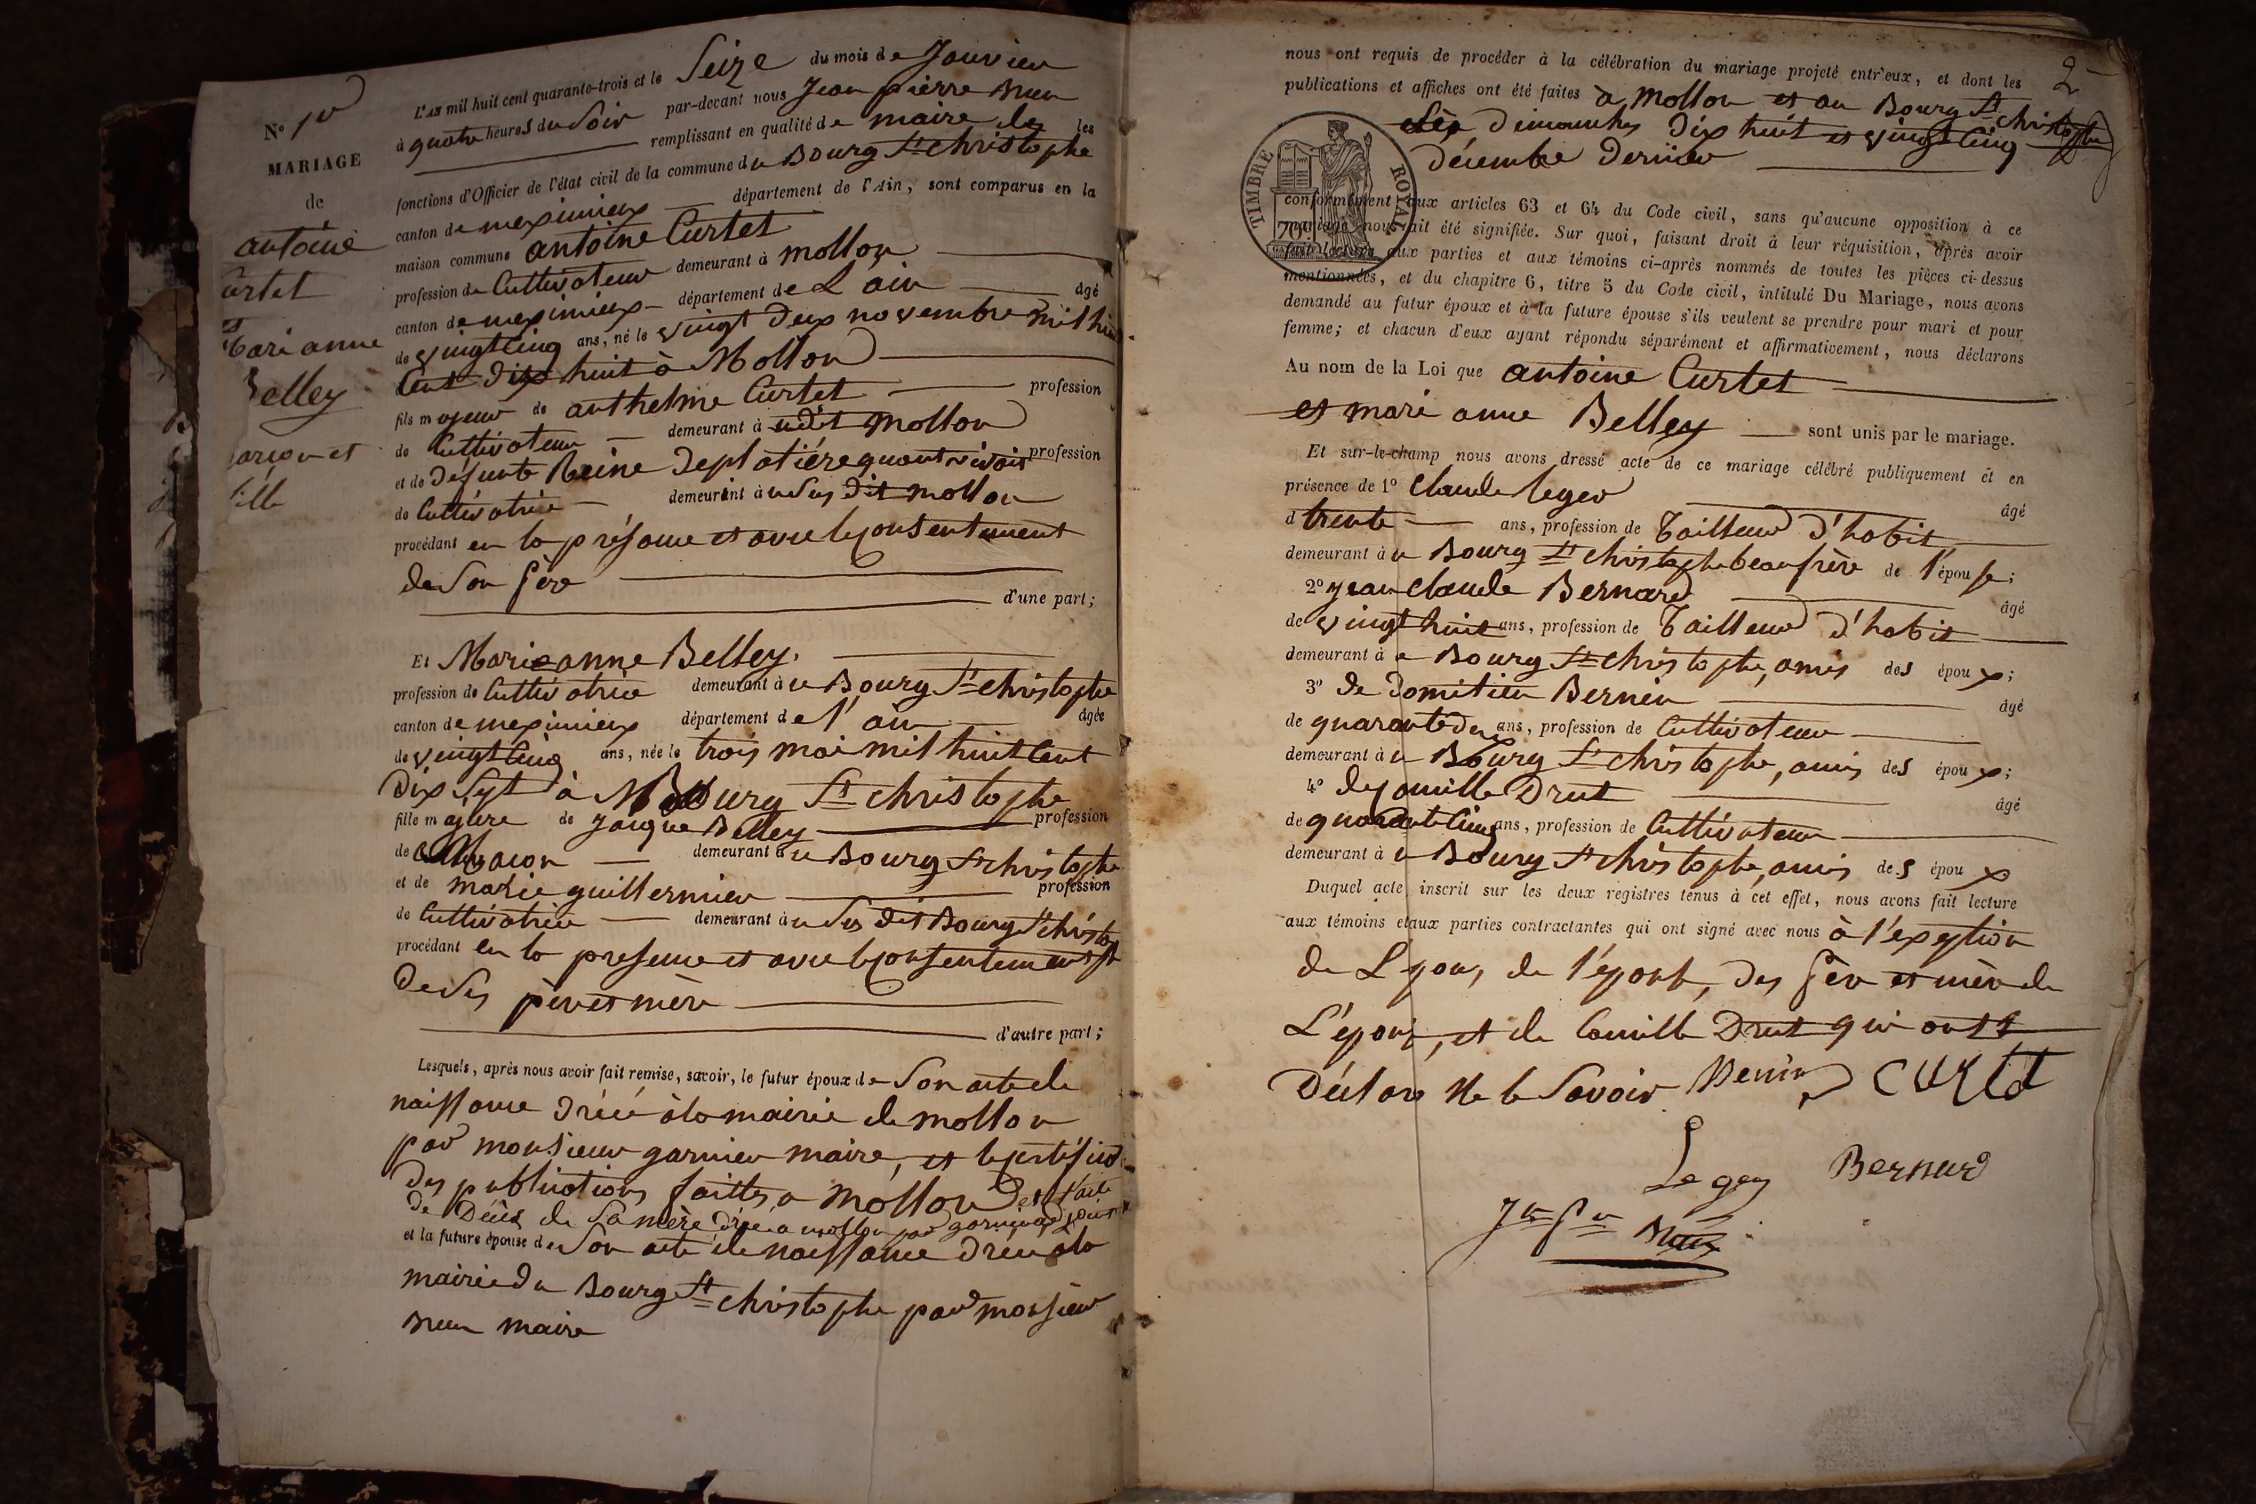 N° 1er
MARIAGE
de
antoine
Curtet
et
Marianne
Belley
garçon et
fille
L'AN mil huit cent quarante-trois et le Seize du mois de Janvier
à quatre heures du Soir par-devant nous Jean pierre
remplissant en qualité de maire les
fonctions d'Officier de l'état civil de la commune du Bourg St christophe
canton de meximieux département de l'Ain, sont comparus en la
maison commune antoine Curtet
profession de Cultivateur demeurant à mollon
canton de meximieux département de L'ain âgé
de vingt cinq ans, né le vingt deux novembre mil huit
Cent dix huit à Mollon
fils majeur de anthelme Curtet profession
de Cultivateur demeurant à udit mollon
et de défunte Reine Deplatière quant vivait profession
de Cultivatrice demeurant à dit mollon
procédant en la présence et avec le consentement
de son père
d'une part;
Et Marie anne Belley.
profession de Cultivatrice demeurant à u Bourg St christophe
canton de meximieux département de l'ain âgée
de vingt Cinq ans, née le trois mai mil huit Cent
Dix Sept à Bourg St christophe
fille majeure de Jaque Belley profession
de Maçon demeurant à u Bourg St christophe
et de marie guillermier profession
de Cultivatrice demeurant à u dit Bourg St christophe
procédant en la présence et avec le consentement
de ses père et mère
d'autre part;
Lesquels, après nous avoir fait remise, savoir, le futur époux de Son acte de
naissance à la mairie de mollon
par monsieur garnier maire, et le certificat
des publications faittes a mollon et l'acte
de Décès de Sa mère a mollon par garnier
et la future épouse de Son acte de naissance à la
mairie du Bourg St christophe par monsieur
maire
2
nous ont requis de procéder à la célébration du mariage projeté entr'eux, et dont les
publications et affiches ont été faites à mollon et au Bourg St christophe
Les dimanches dix huit et vingt Cinq
décembre dernier
TIMBRE ROYAL
70
conformément aux articles 63 et 64 du Code civil, sans qu'aucune opposition à ce
mariage nous ait été signifiée. Sur quoi, faisant droit à leur réquisition, après avoir
fait lecture aux parties et aux témoins ci-après nommés de toutes les pièces ci-dessus
mentionnées, et du chapitre 6, titre 5 du Code civil, intitulé Du Mariage, nous avons
demandé au futur époux et à la future épouse s'ils veulent se prendre pour mari et pour
femme; et chacun d'eux ayant répondu séparément et affirmativement, nous déclarons
Au nom de la Loi que antoine Curtet
et mari anne Belley sont unis par le mariage.
Et sur-le-champ nous avons dressé acte de ce mariage célébré publiquement et en
présence de 1° Claude Leger âgé
d trente ans, profession de Tailleur d'habit
demeurant à u Bourg St christophe beaufrère de l'épouse;
2° Jean Claude Bernard âgé
de vingt huit ans, profession de Tailleur d'habit
demeurant à u Bourg St christophe, amis des époux;
3° de Domitien Bernin âgé
de quarante deux ans, profession de Cultivateur
demeurant à u Bourg St christophe, amis des époux;
4° de Camille Drut âgé
de quarante Cinq ans, profession de Cultivateur
demeurant à u Bourg St christophe, amis des époux
Duquel acte, inscrit sur les deux registres tenus à cet effet, nous avons fait lecture
aux témoins et aux parties contractantes qui ont signé avec nous à l'exeption
de L'époux, de l'épouse, des père et mère de
L'épouse, et de Camille Drut qui ont
Déclaré Ne le Savoir Bernin Curtet
Leger Bernard